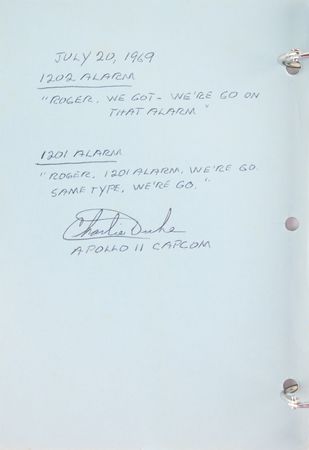 JULY 20, 1969
1202 ALARM
"ROGER, WE GOT - WE'RE GO ON
THAT ALARM"
1201 ALARM
"ROGER, 1201 ALARM, WE'RE GO.
SAME TYPE, WE'RE GO."
Charlie Duke
APOLLO 11 CAPCOM